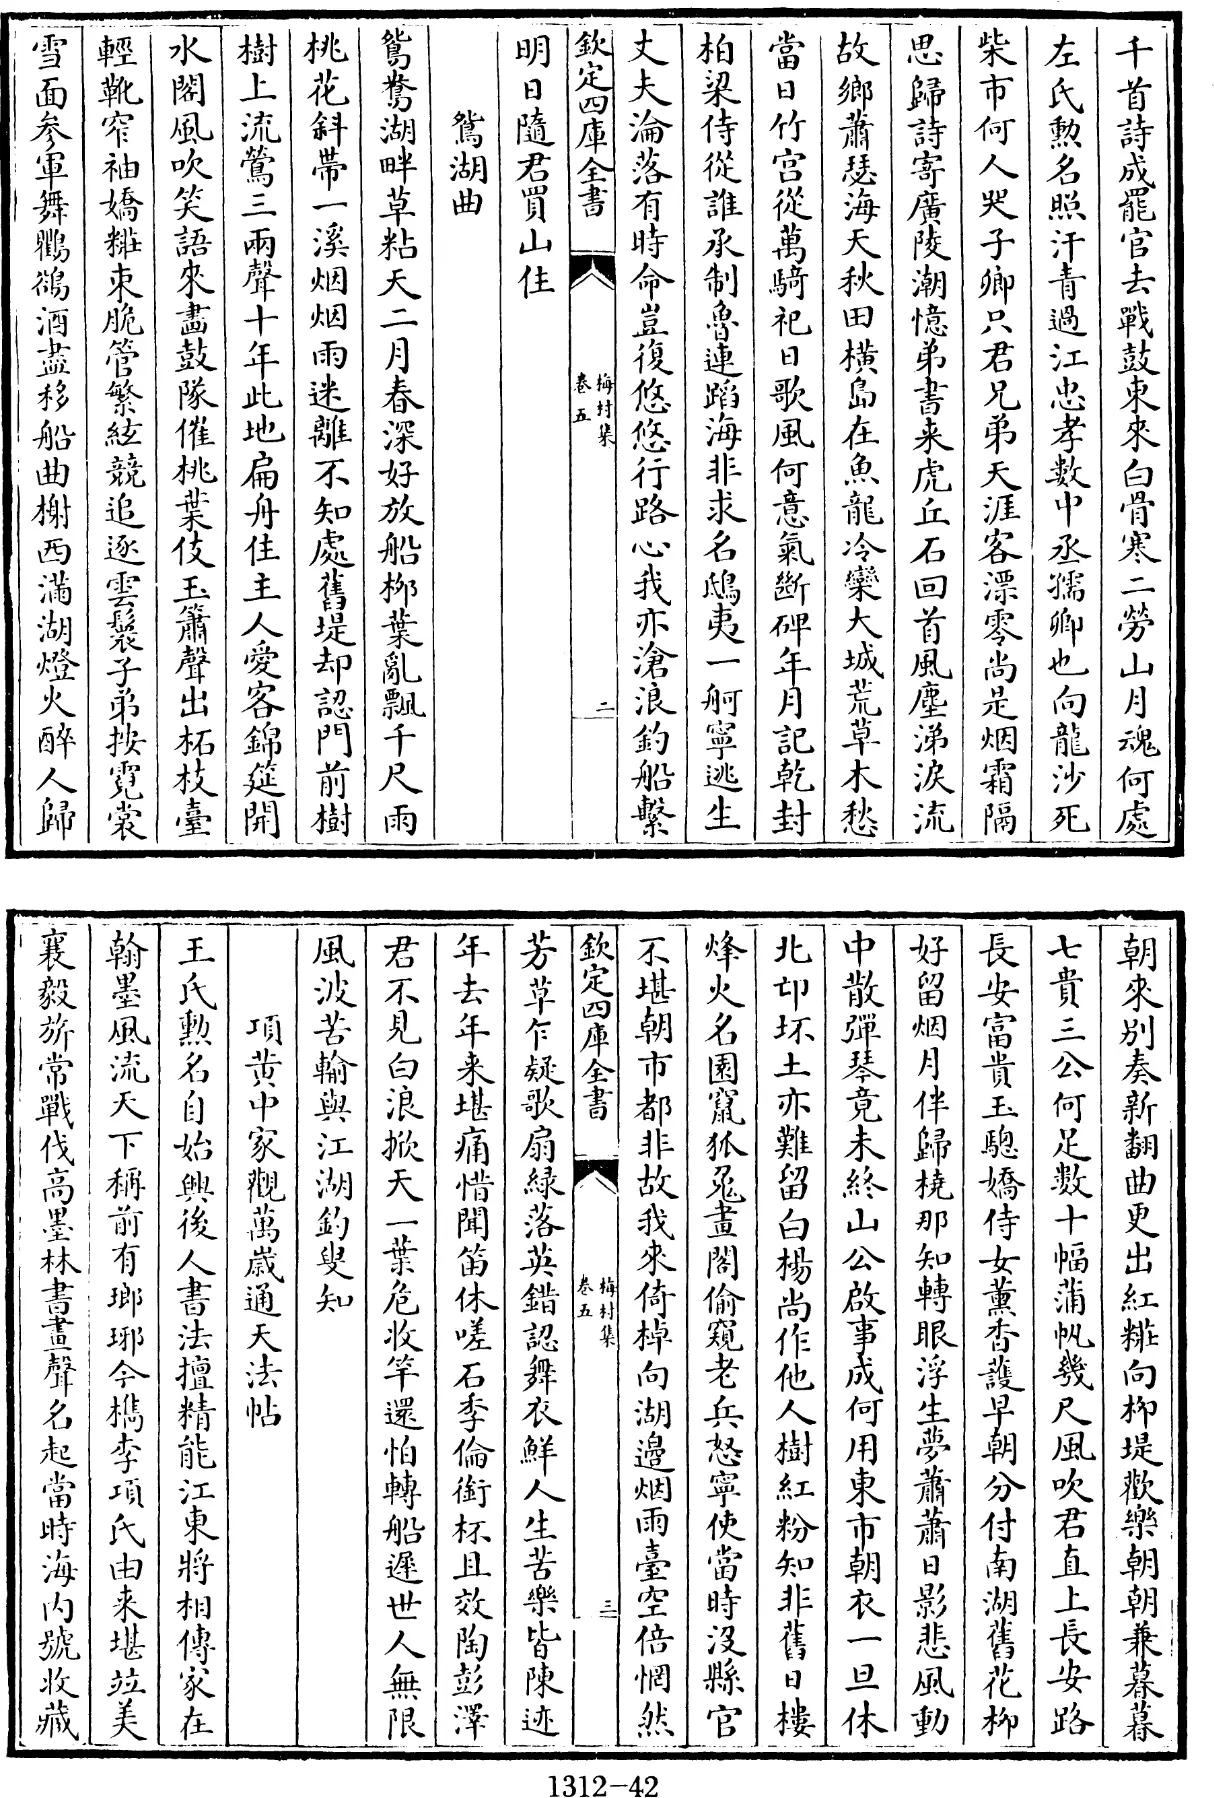 千首詩成罷官去戰鼓東來白骨寒二勞山月魂何處
左氏勲名照汗青過江忠孝數中丞孺卿也向龍沙死
柴市何人哭子卿只君兄弟天涯客漂零尚是烟霜隔
思歸詩寄廣陵潮憶弟書来虎丘石回首風塵涕淚流
故鄉蕭瑟海天秋田横島在魚龍冷欒大城荒草木愁
當日竹宫從萬騎祀日歌風何意氣斷碑年月記乾封
柏梁侍從誰承制魯連蹈海非求名鴟夷一舸寧逃生
丈夫淪落有時命豈復悠悠行路心我亦滄浪釣船繫
欽定四庫全書
梅村集
卷五
二
明日隨君買山住
鴛湖曲
鴛鴦湖畔草粘天二月春深好放船栁葉亂飄千尺雨
桃花斜帶一溪烟烟雨迷離不知處舊堤却認門前樹
樹上流鶯三兩聲十年此地扁舟住主人愛客錦筵開
水閣風吹笑語來畫鼓隊催桃葉伎玉簫聲出柘枝臺
輕靴窄袖嬌糚束脆管繁絃競追逐雲鬟子弟按霓裳
雪面參軍舞鸜鵒酒盡移船曲榭西滿湖燈火醉人歸
朝來别奏新翻曲更出紅糚向栁堤歡樂朝朝兼暮暮
七貴三公何足數十幅蒲帆幾尺風吹君直上長安路
長安富貴玉驄嬌侍女薰香護早朝分付南湖舊花栁
好留烟月伴歸橈那知轉眼浮生夢蕭蕭日影悲風動
中散彈琴竟未終山公啟事成何用東市朝衣一旦休
北邙坏土亦難留白楊尚作他人樹紅粉知非舊日樓
烽火名園竄狐兔畫閣偷窺老兵怒寧使當時沒縣官
不堪朝市都非故我來倚棹向湖邉烟雨臺空倍惘然
欽定四庫全書
梅村集
卷五
三
芳草乍疑歌扇緑落英錯認舞衣鮮人生苦樂皆陳迹
年去年来堪痛惜聞笛休嗟石季倫銜杯且效陶彭澤
君不見白浪掀天一葉危收竿還怕轉船遲世人無限
風波苦輸與江湖釣叟知
項黄中家觀萬嵗通天法帖
王氏勲名自始興後人書法擅精能江東將相傳家在
翰墨風流天下稱前有瑯琊今檇李項氏由来堪竝美
襄毅旂常戰伐高墨林書畫聲名起當時海内號收藏
1312-42